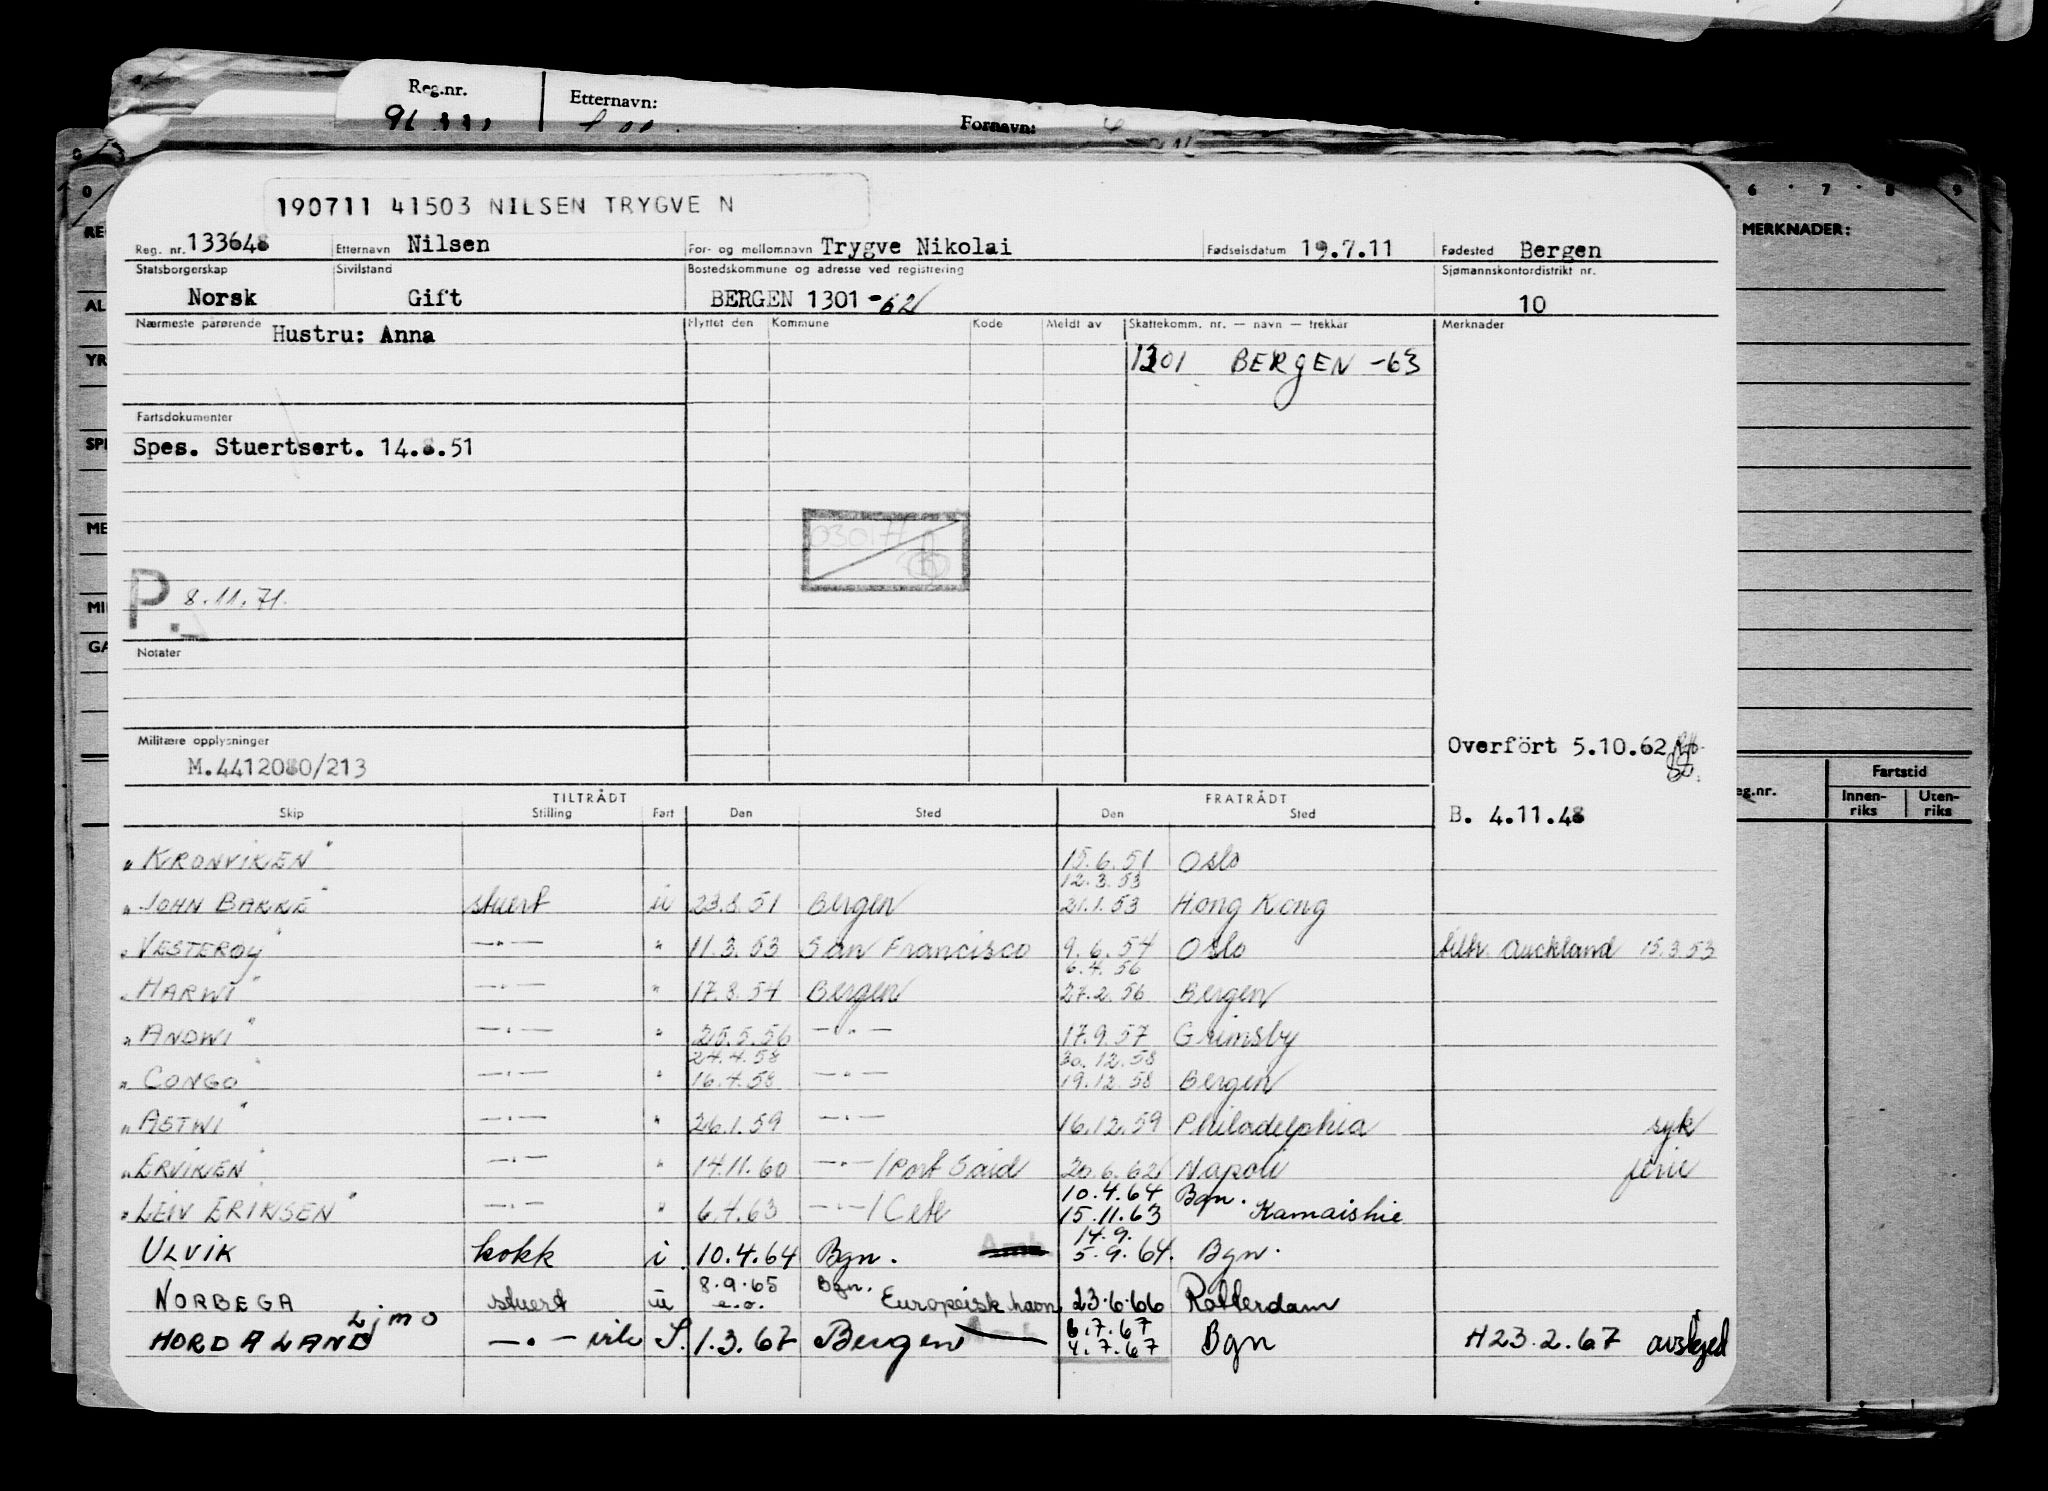 Reg.nr. Etternavn: Fornavn:
6 7 8 9
MERKNADER:
190711 41503 NILSEN TRYGVE N
Reg. nr. 133648 Etternavn Nilsen For- og mellomnavn Trygve Nikolai Fødselsdatum 19.7.11 Fødested Bergen
Statsborgerskap Sivilstand Bostedskommune og adresse ved registrering Sjømannskontordistrikt nr.
Norsk Gift BERGEN 1301 -62 10
Nærmeste pårørende Hustru: Anna Flyttet den Kommune Kode Meldt av Skattekomm. nr. — navn — trekkår Merknader
1301 BERGEN -63
Fartsdokumenter
Spes. Stuertsert. 14.8.51
P. 8.11.71.
Notater
Militære opplysninger
M.4412080/213
Overfört 5.10.62
B. 4.11.48
Fartstid
Innen-riks Uten-riks
TILTRÅDT FRATRÅDT
Skip Stilling Fart Den Sted Den Sted
"KRONVIKEN" 15.6.51 Oslo
12.3.53
"JOHN BAKKE" stuert u 23.8.51 Bergen 21.1.53 Hong Kong
"VESTERØY" —"— " 11.3.53 San Francisco 9.6.54 Oslo tiltr. Auckland 15.3.53
6.4.56
"HARWI" —"— " 17.8.54 Bergen 27.2.56 Bergen
"ANDWI" —"— " 25.5.56 —"— 17.9.57 Grimsby
24.4.58 30.12.58
"CONGO" —"— " 16.4.58 —"— 19.12.58 Bergen
"ASTWI" —"— " 26.1.59 —"— 16.12.59 Philadelphia syk
"ERVIKEN" —"— " 14.11.60 —"—/Port Said 20.6.62 Napoli ferie
10.4.64 Bgn.
"LEIV ERIKSEN" —"— " 6.4.63 —"—/ 15.11.63 Kamaishie
14.9.
ULVIK kokk i 10.4.64 Bgn. 5.9.64. Bgn.
8.9.65 Bgn.
NORBEGA stuert u e.o. Europeisk havn 23.6.66 Rotterdam
LJMO 6.7.67
HORDALAND —"— S. 1.3.67 Bergen 4.7.67 Bgn H23.2.67 avskjed